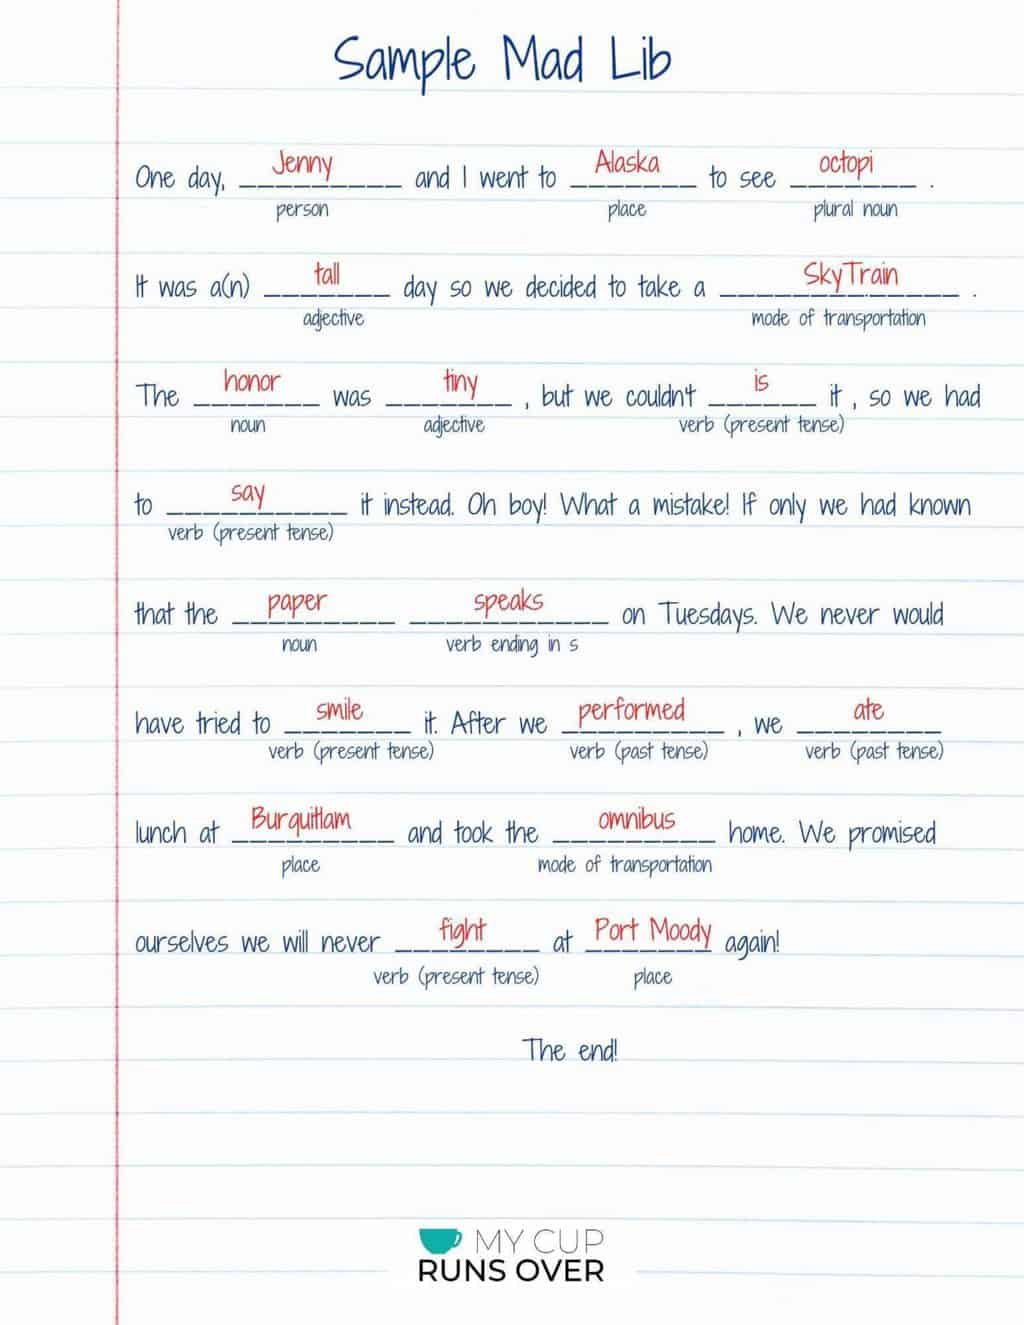 Sample Mad Lib
One day, Jenny and I went to Alaska to see octopi.
person place plural noun
It was a(n) tall day so we decided to take a SkyTrain.
adjective mode of transportation
The honor was tiny, but we couldn't is it, so we had
noun adjective verb (present tense)
to say it instead. Oh boy! What a mistake! If only we had known
verb (present tense)
that the paper speaks on Tuesdays. We never would
noun verb ending in s
have tried to smile it. After we performed, we ate
verb (present tense) verb (past tense) verb (past tense)
lunch at Burquitlam and took the omnibus home. We promised
place mode of transportation
ourselves we will never fight at Port Moody again!
verb (present tense) place
The end!
MY CUP
RUNS OVER